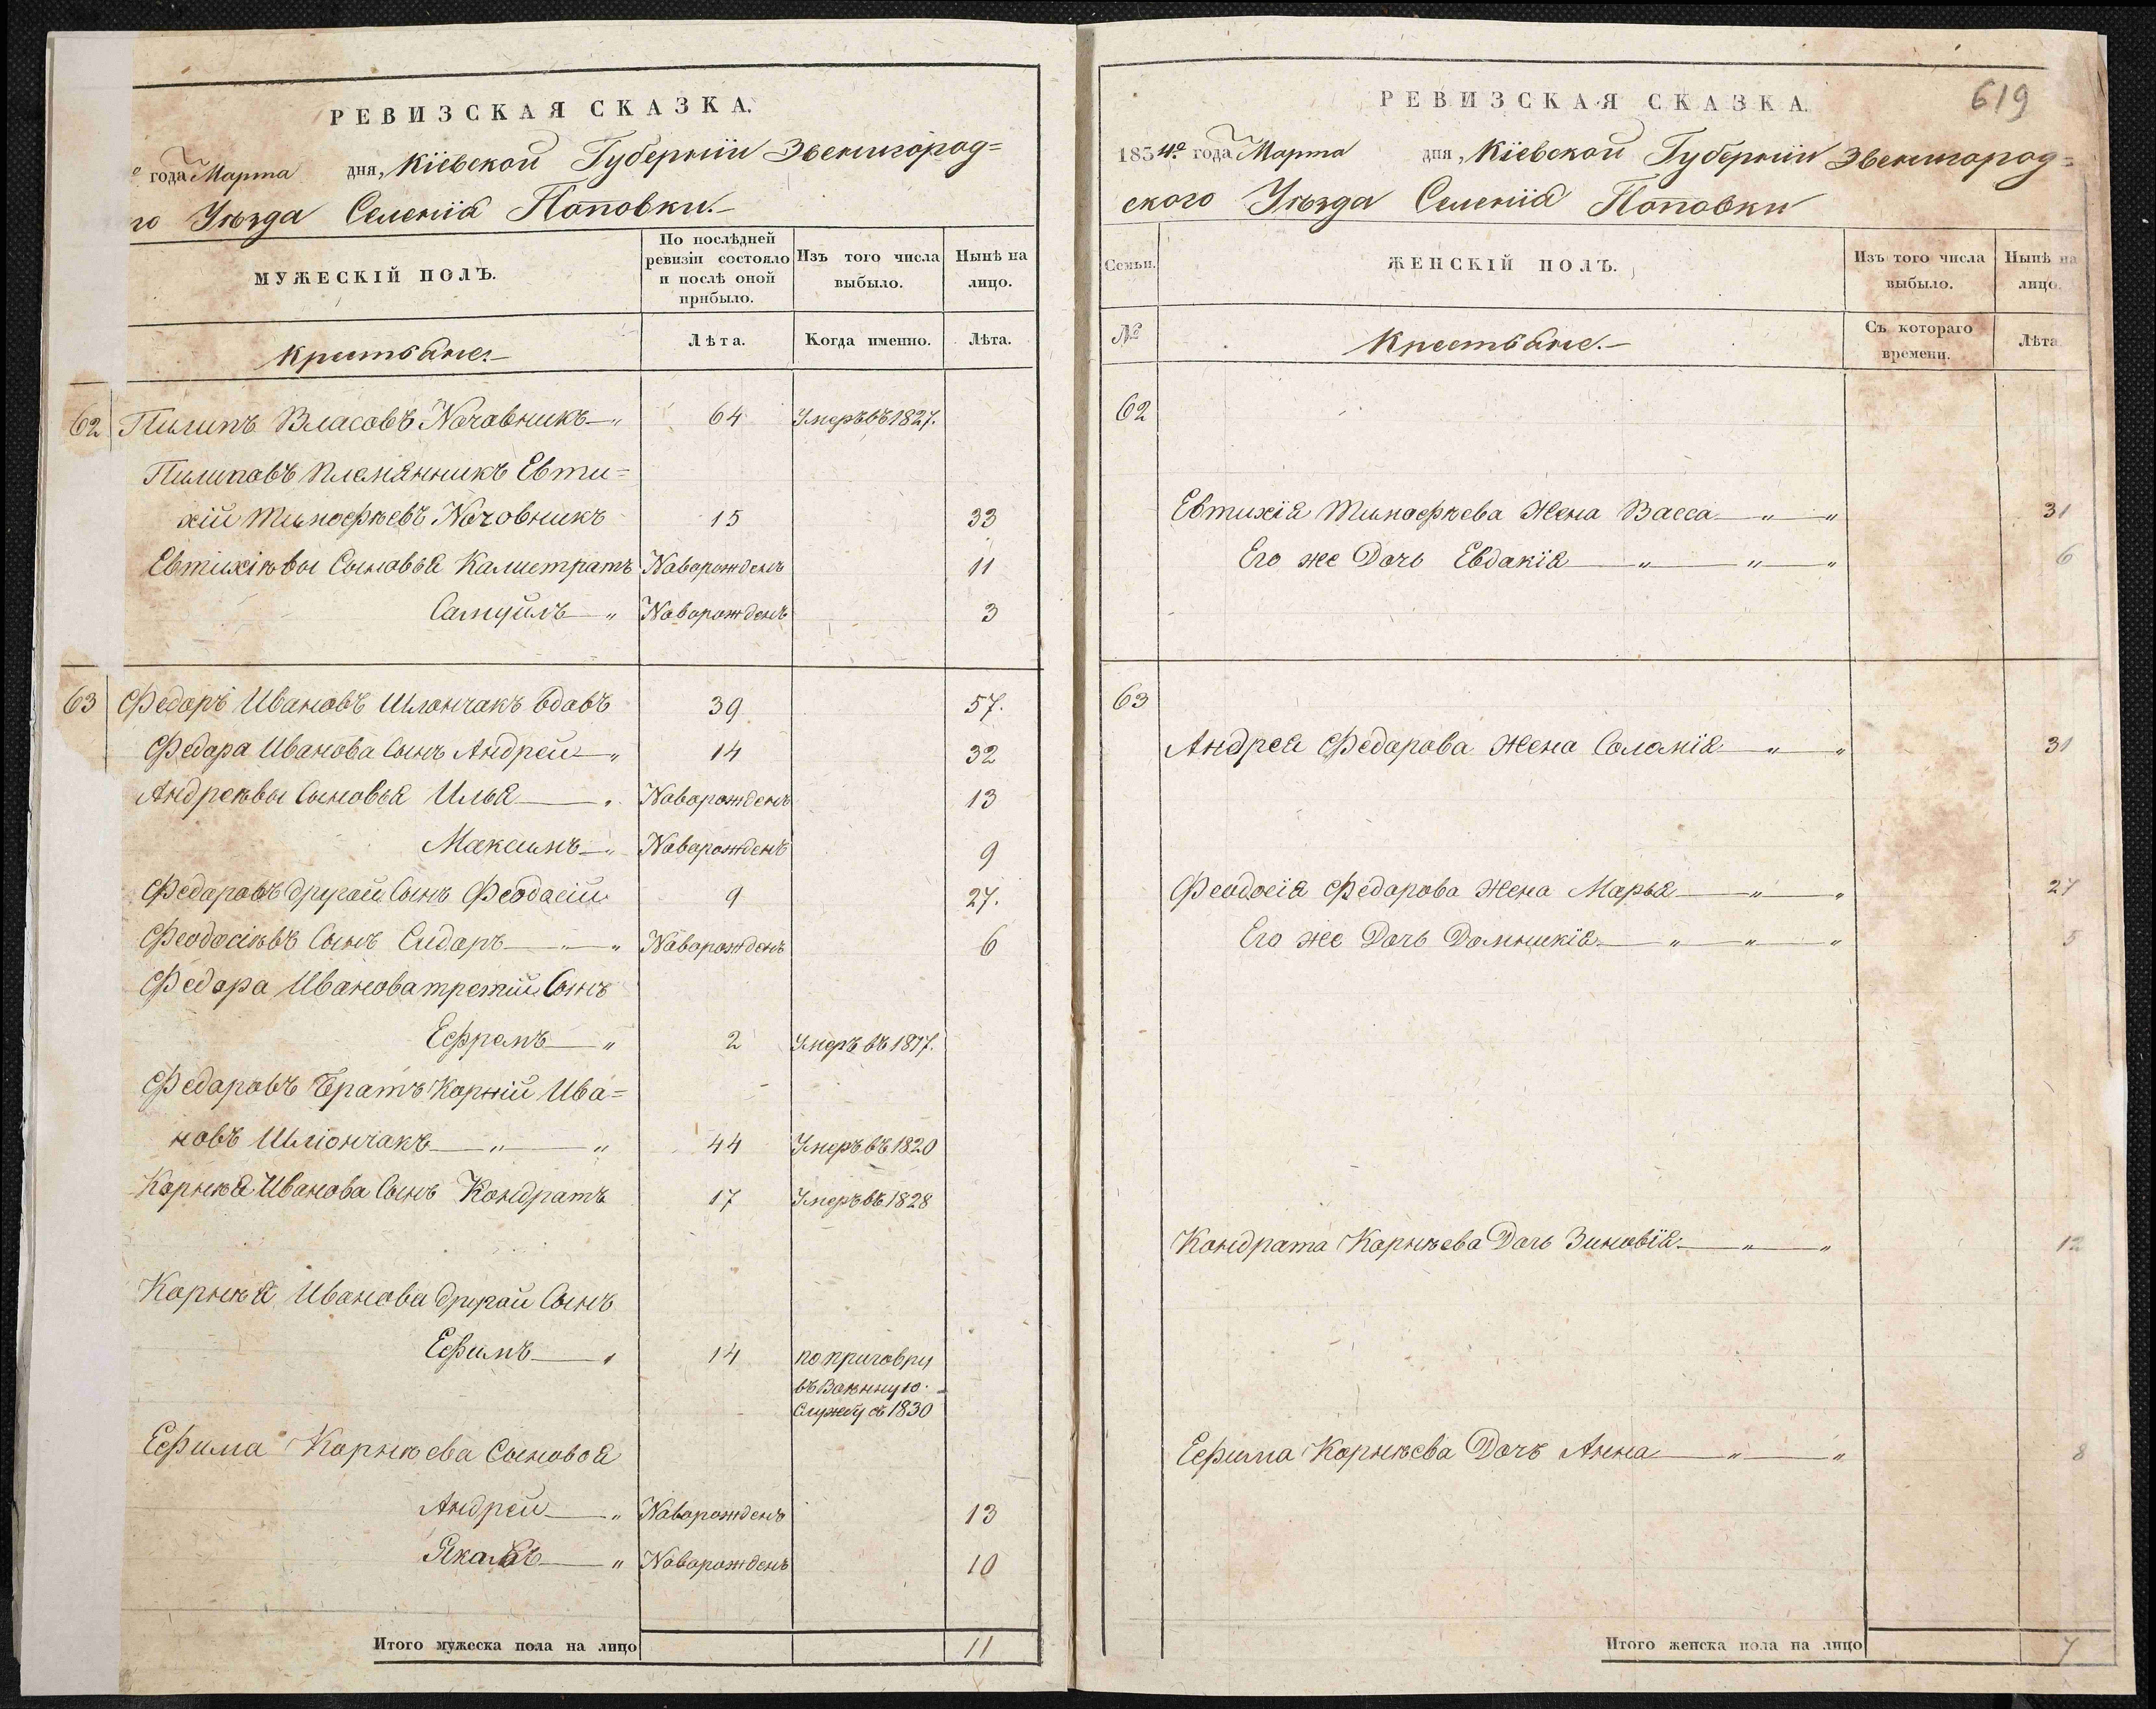 РЕВИЗСКАЯ СКАЗКА.
года Марта дня, Кіевской Губерніи Звенигород=
го Уѣзда Селенія Поповки.
МУЖЕСКІЙ ПОЛЪ.
По послѣдней ревизіи состояло и послѣ оной прибыло.
Изъ того числа выбыло.
Нынѣ на лицо.
Крестьяне.
Лѣта.
Когда именно.
Лѣта.
62 Пилипъ Власовъ Кочавникъ 64 Умеръ въ 1827.
Пилиповъ племянникъ Евти=
хій Тимофѣевъ Кочовникъ 15 33
Евтихіѣвы Сыновья Калистратъ Наворожденъ 11
Самуйлъ Наворожденъ 3
63 Федоръ Ивановъ Шлончакъ вдовъ 39 57.
Федора Иванова Сынъ Андрей 14 32
Андреѣвы Сыновья Илья Наворожденъ 13
Максимъ Наворожденъ 9
Федоровъ другой Сынъ Феодосій 9 27.
Феодосіѣвъ Сынъ Сидоръ Наворожденъ 6
Федора Иванова третій Сынъ
Ефремъ 2 Умеръ въ 1817.
Федоровъ Братъ Корній Ива=
новъ Шліончакъ 44 Умеръ въ 1820
Корнѣя Иванова Сынъ Кондратъ 17 Умеръ въ 1828
Корнѣя Иванова другой Сынъ
Ефимъ 14 по приговру
въ Воѣнную
Службу съ 1830
Ефима Корнѣева Сыновья
Андрей Наворожденъ 13
Яковъ Наворожденъ 10
Итого мужеска пола на лицо 11
619
РЕВИЗСКАЯ СКАЗКА.
1834го года Марта дня, Кіевской Губерніи Звенигород=
ского Уѣзда Селенія Поповки
Семьи.
ЖЕНСКІЙ ПОЛЪ.
Изъ того числа выбыло.
Нынѣ на лицо.
№
Крестьяне.
Съ котораго времени.
Лѣта
62
Евтихія Тимофѣева Жена Васса 31
Его же Дочь Евдакія 6
63
Андрея Федорова Жена Соломія 31
Феодосія Федорова Жена Марья 27
Его же Дочь Домникія 5
Кондрата Корнѣева Дочь Зиновія 12
Ефима Корнѣева Дочъ Анна 8
Итого женска пола на лицо 7